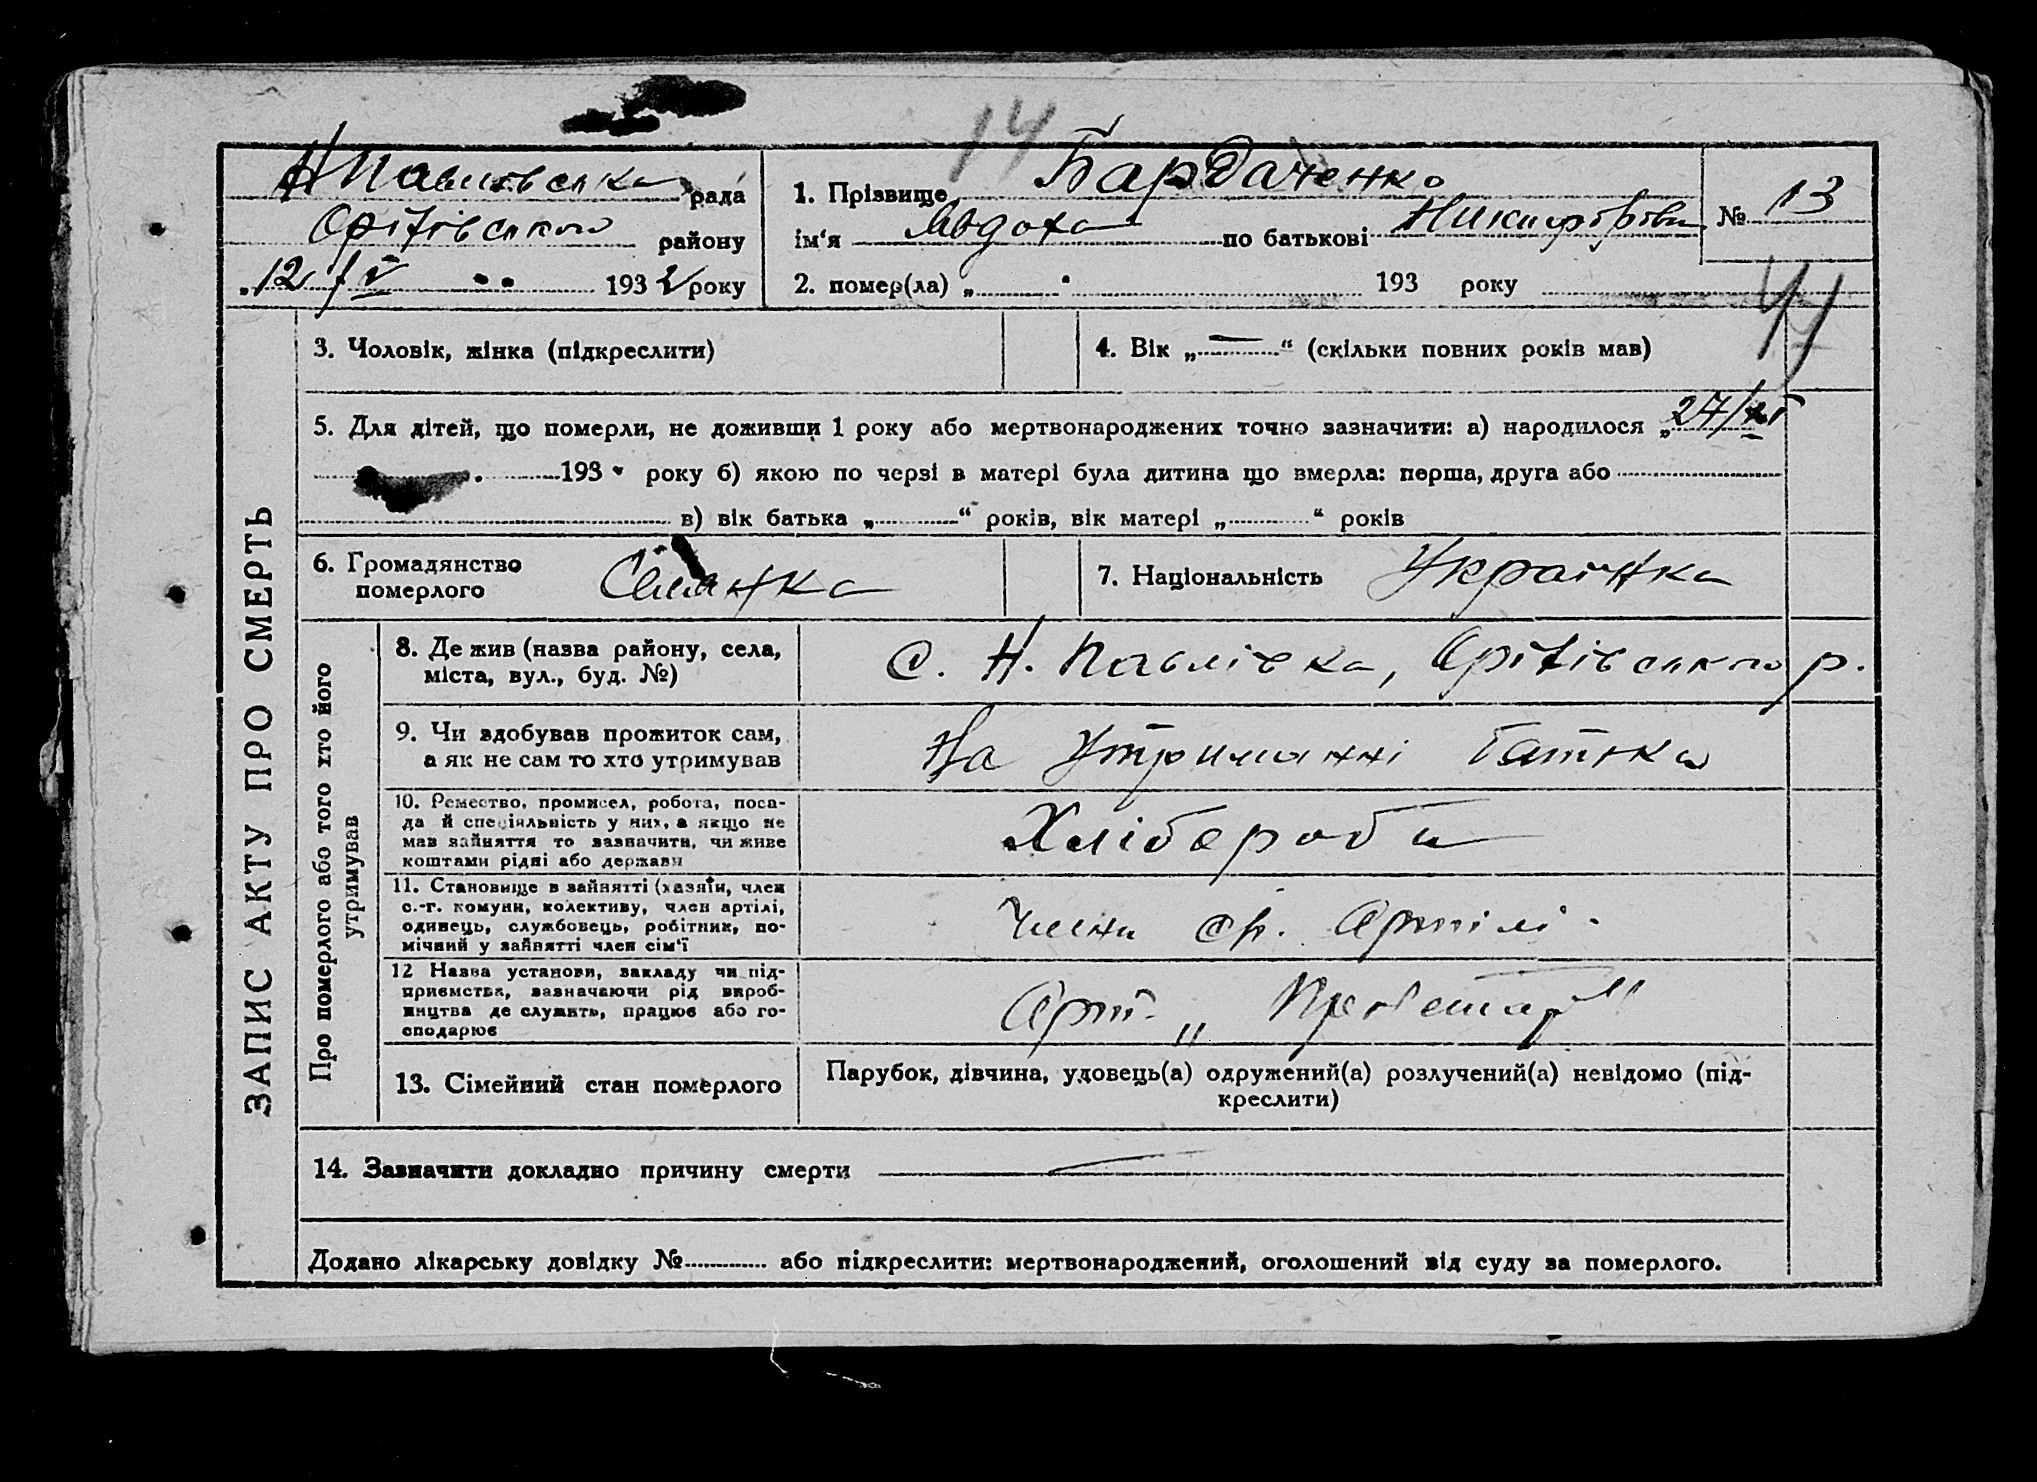 14
Н Павлівська рада
Оріхівського району
12/V 1932 року
1. Прізвище Бардаченко
ім'я Явдоха по батькові Никифорівна
№ 13
2. помер(ла) „ " 193 року
3. Чоловік, жінка (підкреслити)
4. Вік „—" (скільки повних років мав)
5. Для дітей, що померли, не доживши 1 року або мертвонароджених точно зазначити: а) народилося „27/
193 року б) якою по черзі в матері була дитина що вмерла: перша, друга або
в) вік батька „ " років, вік матері „ " років
6. Громадянство
померлого
Селянка
7. Національність Українка
ЗАПИС АКТУ ПРО СМЕРТЬ
Про померлого або того хто його
утримував
8. Де жив (назва району, села,
міста, вул., буд. №)
с. Н. Павлівка, Оріхівського р.
9. Чи здобував прожиток сам,
а як не сам то хто утримував
На утриманні батька
10. Ремество, промисел, робота, поса-
да й спеціяльність у них, а якщо не
мав зайняття то зазначити, чи живе
коштами рідні або держави
Хлібероби
11. Становище в зайнятті (хазяїн, член
с.-г. комуни, колективу, член артілі,
одинець, службовець, робітник, по-
мічний у зайнятті член сім'ї
Члени с/г. Артілі
12 Назва установи, закладу чи під-
приємства, зазначаючи рід вироб-
ництва де служить, працює або го-
сподарює
Арт. „
13. Сімейний стан померлого
Парубок, дівчина, удовець(а) одружений(а) розлучений(а) невідомо (під-
креслити)
14. Зазначити докладно причину смерти —
Додано лікарську довідку № або підкреслити: мертвонароджений, оголошений від суду за померлого.